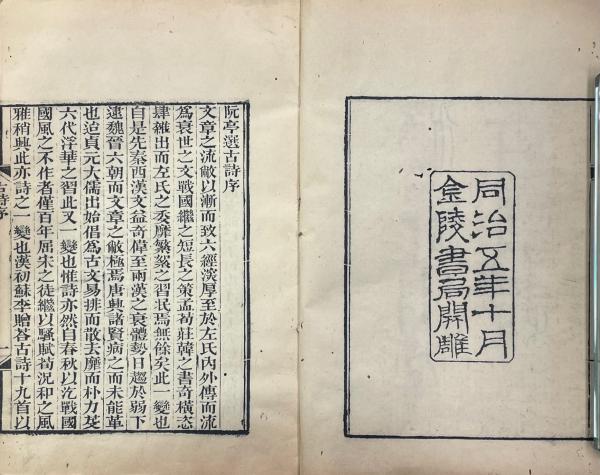 同治五年十月
金陵書局開雕
阮亭選古詩序
文章之流敝以漸而致六經渾厚至於左氏內外傳而流
為衰世之文戰國繼之短長之策孟荀莊韓之書奇橫恣
肆雜出而左氏之委靡繁絮之習泯焉無餘矣此一變也
自是先秦西漢文益奇偉至兩漢之衰體勢日趨於弱下
逮魏晉六朝而文章之敝極焉唐興諸賢病之而未能革
也迨貞元大儒出始倡為古文易排而散去靡而朴力芟
六代浮華之習此又一變也惟詩亦然自春秋以汔戰國
國風之不作者僅百年屈宋之徒繼以騷賦荀況和之風
雅稍興此亦詩之一變也漢初蘇李贈答古詩十九首以
古詩序
一